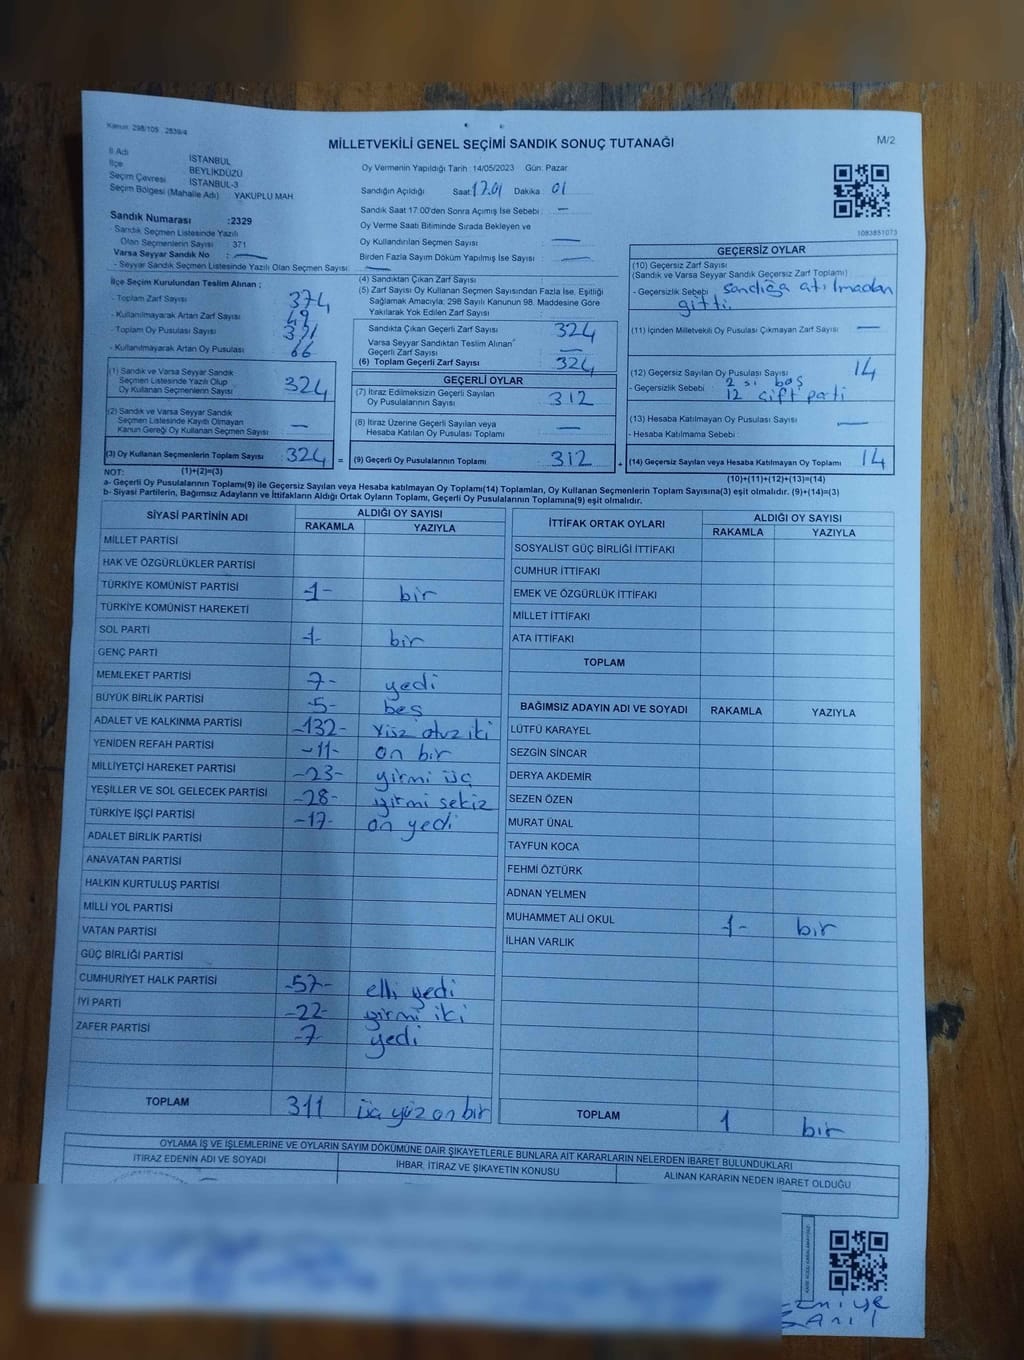 Kanun: 298/105 2839/4
MİLLETVEKİLİ GENEL SEÇİMİ SANDIK SONUÇ TUTANAĞI
M/2
İl Adı İSTANBUL
İlçe BEYLİKDÜZÜ
Seçim Çevresi İSTANBUL-3
Seçim Bölgesi (Mahalle Adı) YAKUPLU MAH
Sandık Numarası :2329
Sandık Seçmen Listesinde Yazılı
Olan Seçmenlerin Sayısı : 371
Varsa Seyyar Sandık No : —
- Seyyar Sandık Seçmen Listesinde Yazılı Olan Seçmen Sayısı: —
Oy Vermenin Yapıldığı Tarih :14/05/2023 Gün: Pazar
Sandığın Açıldığı Saat 17.01 Dakika 01
Sandık Saat 17:00'den Sonra Açımış İse Sebebi : —
Oy Verme Saati Bitiminde Sırada Bekleyen ve
Oy Kullandırılan Seçmen Sayısı : —
Birden Fazla Sayım Döküm Yapılmış İse Sayısı : —
1083851073
İlçe Seçim Kurulundan Teslim Alınan ;
- Toplam Zarf Sayısı : 374
- Kullanılmayarak Artan Zarf Sayısı : 49
- Toplam Oy Pusulası Sayısı :
- Kullanılmayarak Artan Oy Pusulası : 66
(1) Sandık ve Varsa Seyyar Sandık
Seçmen Listesinde Yazılı Olup
Oy Kullanan Seçmenlerin Sayısı : 324
(2) Sandık ve Varsa Seyyar Sandık
Seçmen Listesinde Kayıtlı Olmayan
Kanun Gereği Oy Kullanan Seçmen Sayısı : —
(3) Oy Kullanan Seçmenlerin Toplam Sayısı : 324 =
(4) Sandıktan Çıkan Zarf Sayısı :
(5) Zarf Sayısı Oy Kullanan Seçmen Sayısından Fazla İse, Eşitliği
Sağlamak Amacıyla; 298 Sayılı Kanunun 98. Maddesine Göre
Yakılarak Yok Edilen Zarf Sayısı :
Sandıkta Çıkan Geçerli Zarf Sayısı : 324
Varsa Seyyar Sandıktan Teslim Alınan
Geçerli Zarf Sayısı : —
(6) Toplam Geçerli Zarf Sayısı : 324
GEÇERLİ OYLAR
(7) İtiraz Edilmeksizin Geçerli Sayılan
Oy Pusulalarının Sayısı : 312
(8) İtiraz Üzerine Geçerli Sayılan veya
Hesaba Katılan Oy Pusulası Toplamı : —
(9) Geçerli Oy Pusulalarının Toplamı : 312 +
GEÇERSİZ OYLAR
(10) Geçersiz Zarf Sayısı
(Sandık ve Varsa Seyyar Sandık Geçersiz Zarf Toplamı)
- Geçersizlik Sebebi : sandığa atılmadan
gitti.
(11) İçinden Milletvekili Oy Pusulası Çıkmayan Zarf Sayısı : —
(12) Geçersiz Sayılan Oy Pusulası Sayısı : 14
- Geçersizlik Sebebi : 2 si boş
12 çift parti
(13) Hesaba Katılmayan Oy Pusulası Sayısı : —
- Hesaba Katılmama Sebebi :
(14) Geçersiz Sayılan veya Hesaba Katılmayan Oy Toplamı : 14
NOT: (1)+(2)=(3) (10)+(11)+(12)+(13)=(14)
a- Geçerli Oy Pusulalarının Toplamı(9) ile Geçersiz Sayılan veya Hesaba katılmayan Oy Toplamı(14) Toplamları, Oy Kullanan Seçmenlerin Toplam Sayısına(3) eşit olmalıdır. (9)+(14)=(3)
b- Siyasi Partilerin, Bağımsız Adayların ve İttifakların Aldığı Ortak Oyların Toplamı, Geçerli Oy Pusulalarının Toplamına(9) eşit olmalıdır.
SİYASİ PARTİNİN ADI ALDIĞI OY SAYISI
RAKAMLA YAZIYLA
MİLLET PARTİSİ
HAK VE ÖZGÜRLÜKLER PARTİSİ
TÜRKİYE KOMÜNİST PARTİSİ -1- bir
TÜRKİYE KOMÜNİST HAREKETİ
SOL PARTİ -1- bir
GENÇ PARTİ
MEMLEKET PARTİSİ 7- yedi
BÜYÜK BİRLİK PARTİSİ -5- beş
ADALET VE KALKINMA PARTİSİ -132- yüz otuz iki
YENİDEN REFAH PARTİSİ -11- on bir
MİLLİYETÇİ HAREKET PARTİSİ -23- yirmi üç
YEŞİLLER VE SOL GELECEK PARTİSİ -28- yirmi sekiz
TÜRKİYE İŞÇİ PARTİSİ -17- on yedi
ADALET BİRLİK PARTİSİ
ANAVATAN PARTİSİ
HALKIN KURTULUŞ PARTİSİ
MİLLİ YOL PARTİSİ
VATAN PARTİSİ
GÜÇ BİRLİĞİ PARTİSİ
CUMHURİYET HALK PARTİSİ -57- elli yedi
İYİ PARTİ -22- yirmi iki
ZAFER PARTİSİ -7- yedi
TOPLAM 311 üç yüz on bir
İTTİFAK ORTAK OYLARI ALDIĞI OY SAYISI
RAKAMLA YAZIYLA
SOSYALİST GÜÇ BİRLİĞİ İTTİFAKI
CUMHUR İTTİFAKI
EMEK VE ÖZGÜRLÜK İTTİFAKI
MİLLET İTTİFAKI
ATA İTTİFAKI
TOPLAM
BAĞIMSIZ ADAYIN ADI VE SOYADI RAKAMLA YAZIYLA
LÜTFÜ KARAYEL
SEZGİN SİNCAR
DERYA AKDEMİR
SEZEN ÖZEN
MURAT ÜNAL
TAYFUN KOCA
FEHMİ ÖZTÜRK
ADNAN YELMEN
MUHAMMET ALİ OKUL -1- bir
İLHAN VARLIK
TOPLAM 1 bir
OYLAMA İŞ VE İŞLEMLERİNE VE OYLARIN SAYIM DÖKÜMÜNE DAİR ŞİKAYETLERLE BUNLARA AİT KARARLARIN NELERDEN İBARET BULUNDUKLARI
İTİRAZ EDENİN ADI VE SOYADI İHBAR, İTİRAZ VE ŞİKAYETİN KONUSU ALINAN KARARIN NEDEN İBARET OLDUĞU